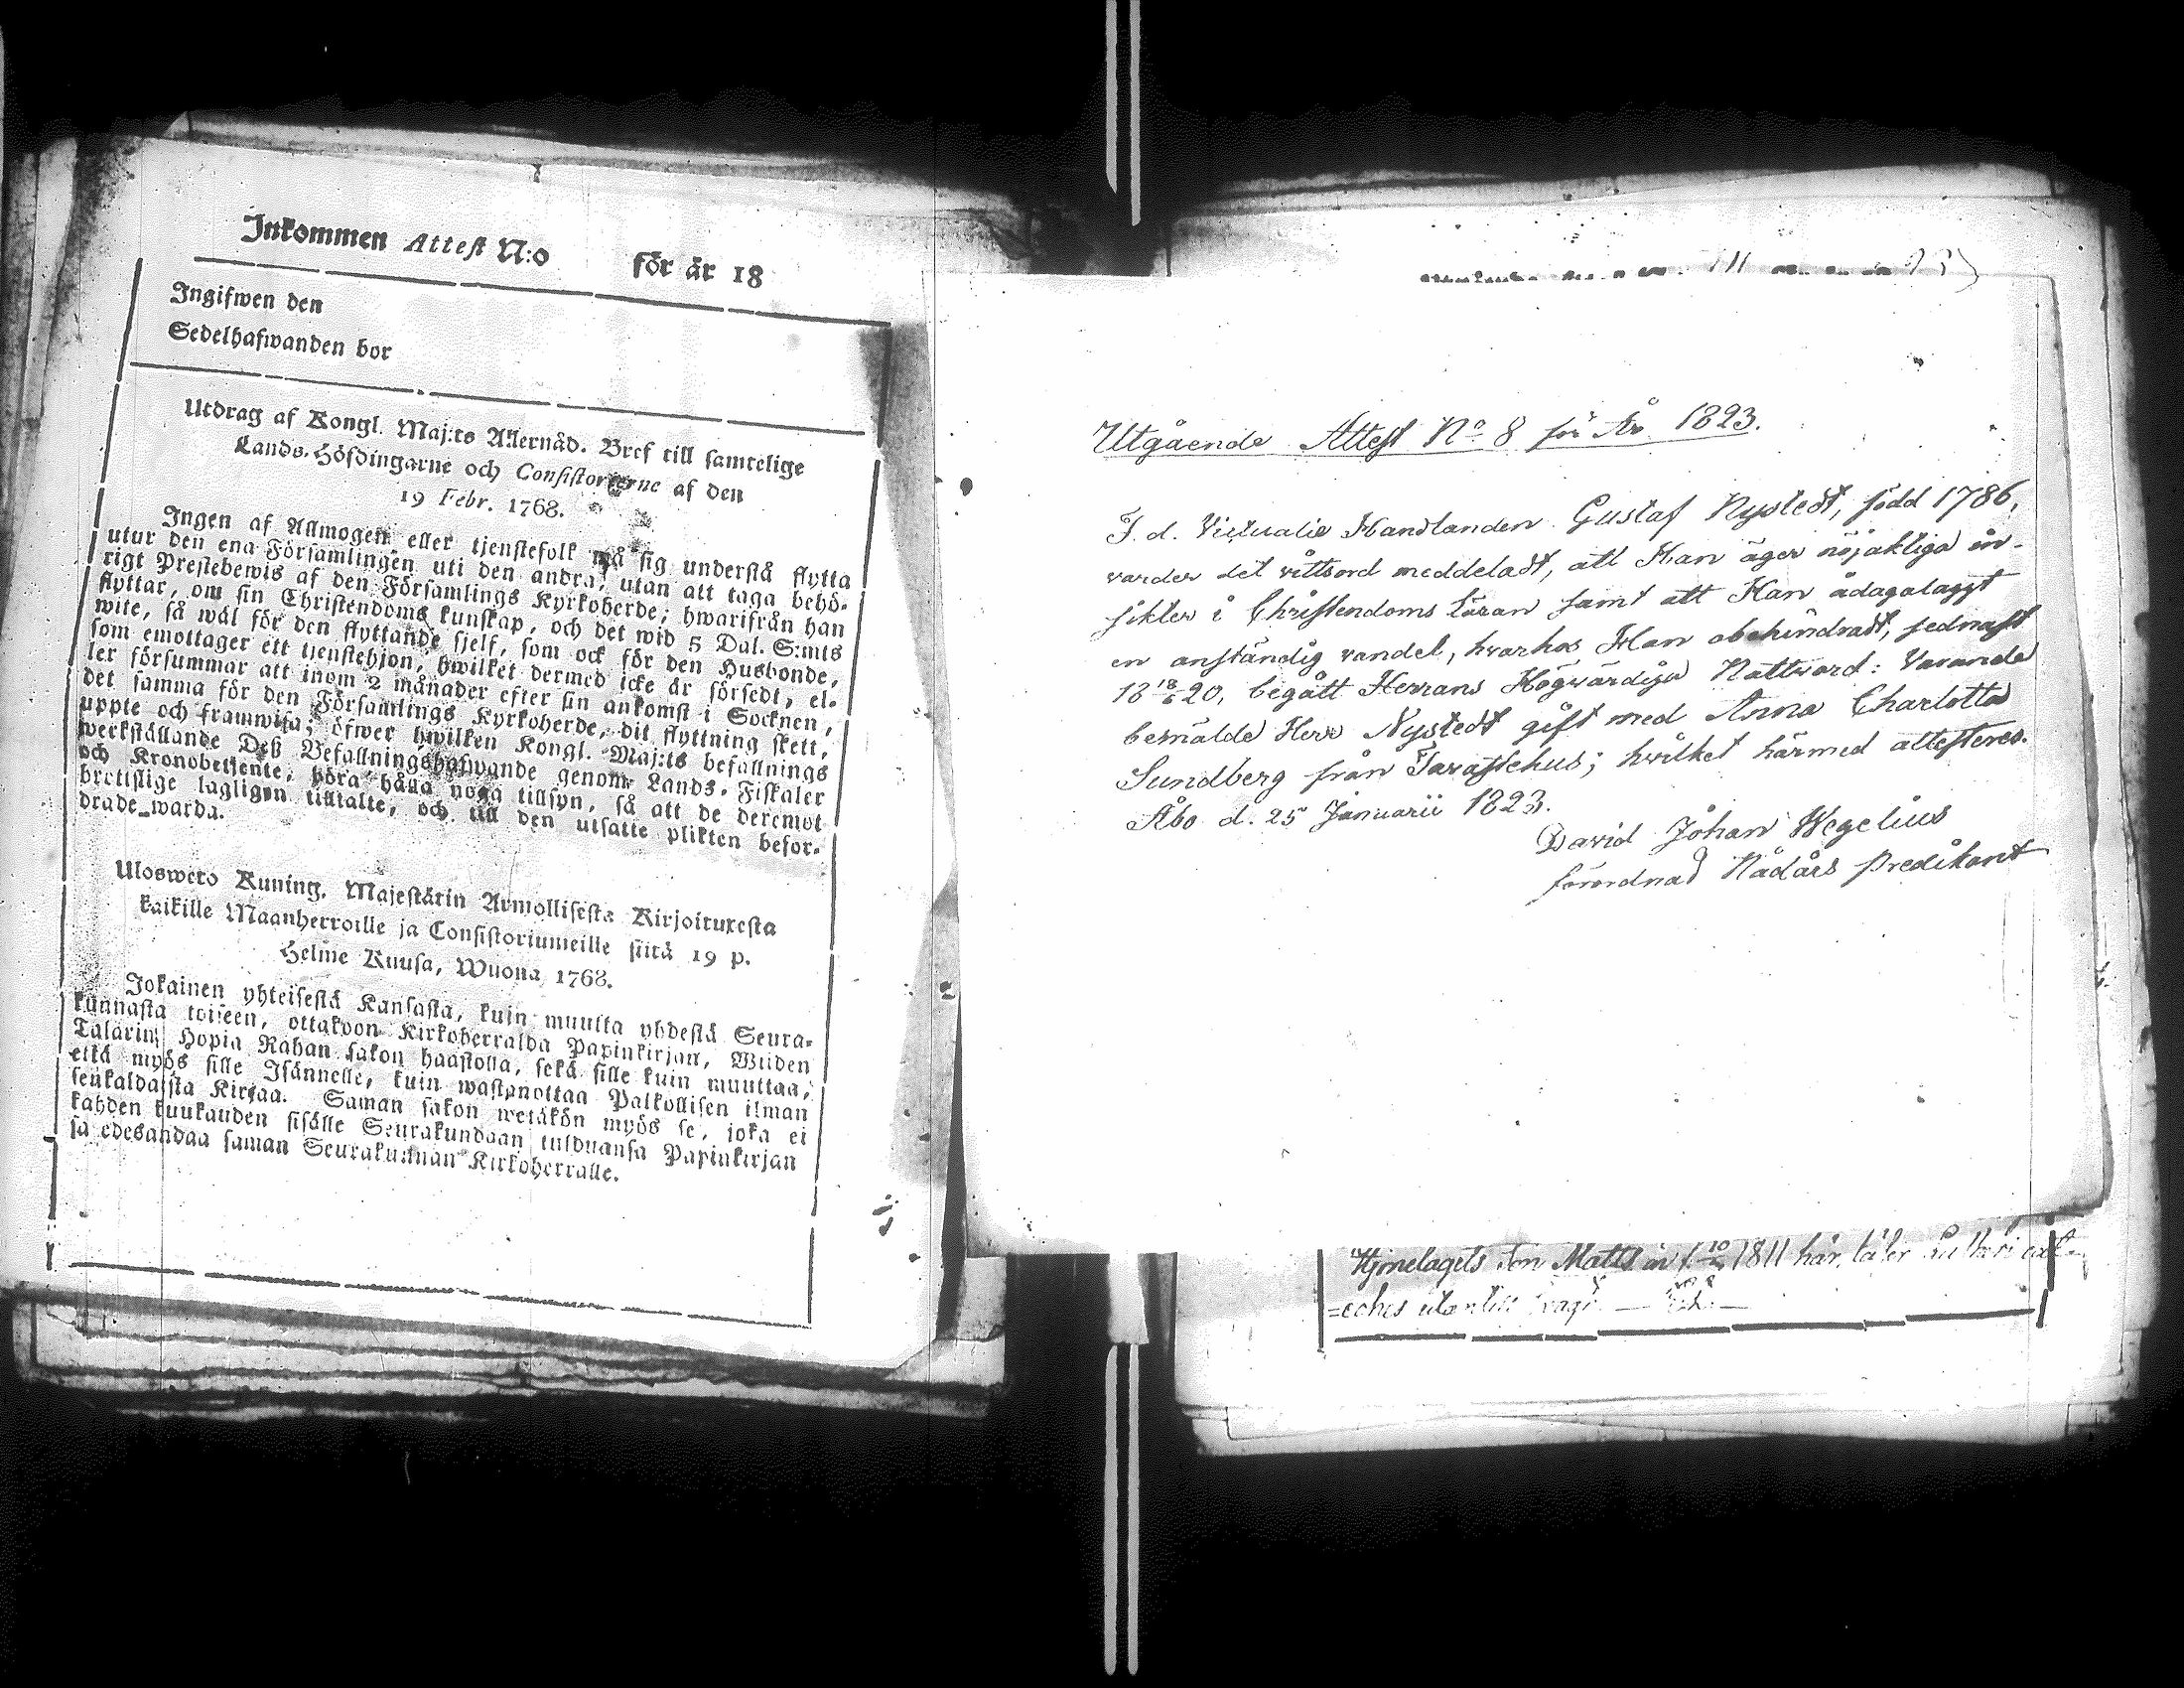 Inkommen Attest N:o för år 18
Ingifwen den
Sedelhafwanden bor
Utdrag af Kongl. Maj:ts Allernåd. Bref till samtelige
Lands-Höfdingarne och Consistorierne af den
19 Febr. 1768.
Ingen af Allmogen eller tjenstefolk må sig understå flytta
utur den ena Församlingen uti den andra, utan att taga behö-
rigt Prestebewis af den Församlings Kyrkoherde; hwarifrån han
flyttar, om sin Christendoms kunskap, och det wid 5 Dal. S:mts
wite, så wäl för den flyttande sjelf, som ock för den Husbonde,
som emottager ett tjenstehjon, hwilket dermed icke är försedt, el-
ler försummar att inom 2 månader efter sin ankomst i Socknen,
det samma för den Församlings Kyrkoherde, dit flyttning skett,
uppte och framwisa; öfwer hwilken Kongl. Maj:ts befallnings
werkställande Deß Befallningshafwande genom Lands-Fiskaler
och Kronobetjente, böra hålla noga tillsyn, så att de deremot
brottslige lagligen tilltalte, och till den utsatte plikten befor-
drade warda.
Ulosweto Kuning. Majestätin Armollisesta Kirjoituxesta
kaikille Maanherroille ja Consistoriumeille siitä 19 p.
Helme Kuusa, Wuona 1768.
Jokainen yhteisestä Kansasta, kuin muutta yhdestä Seura-
kunnasta toiseen, ottakoon Kirkoherralda Papinkirjan, Wiiden
Talarin Hopia Rahan sakon haastolla, sekä sille kuin muuttaa,
että myös sille Isännelle, kuin wastanottaa Palkollisen ilman
senkaldaista Kirjaa. Saman sakon wetäkön myös se, joka ei
kahden kuukauden sisälle Seurakundaan tulduansa Papinkirjan
ja edesandaa saman Seurakunnan Kirkoherralle.
Utgående Attest No 8 för År 1823.
F. d. Victualie Handlanden Gustaf Nystedt, född 1786,
varder det vittsord meddeladt, att Han äger nöjaktiga in-
sikter i Christendoms läran samt att Han ådagalaggt
en anständig vandel, hvarhos Han obehindradt, sednast
18 18/6 20, begått Herrans Högwärdiga Nattvard: Varande
bemälde Herr Nystedt gift med Anna Charlotta
Sundberg från Tavastehus; hvilket härmed attesteras.
Åbo d. 25 Januarii 1823.
David Johan Wegelius
förordnad Nådårs predikant
Hjonelagets son Matts 10 1811 här, läser
=eches utantill